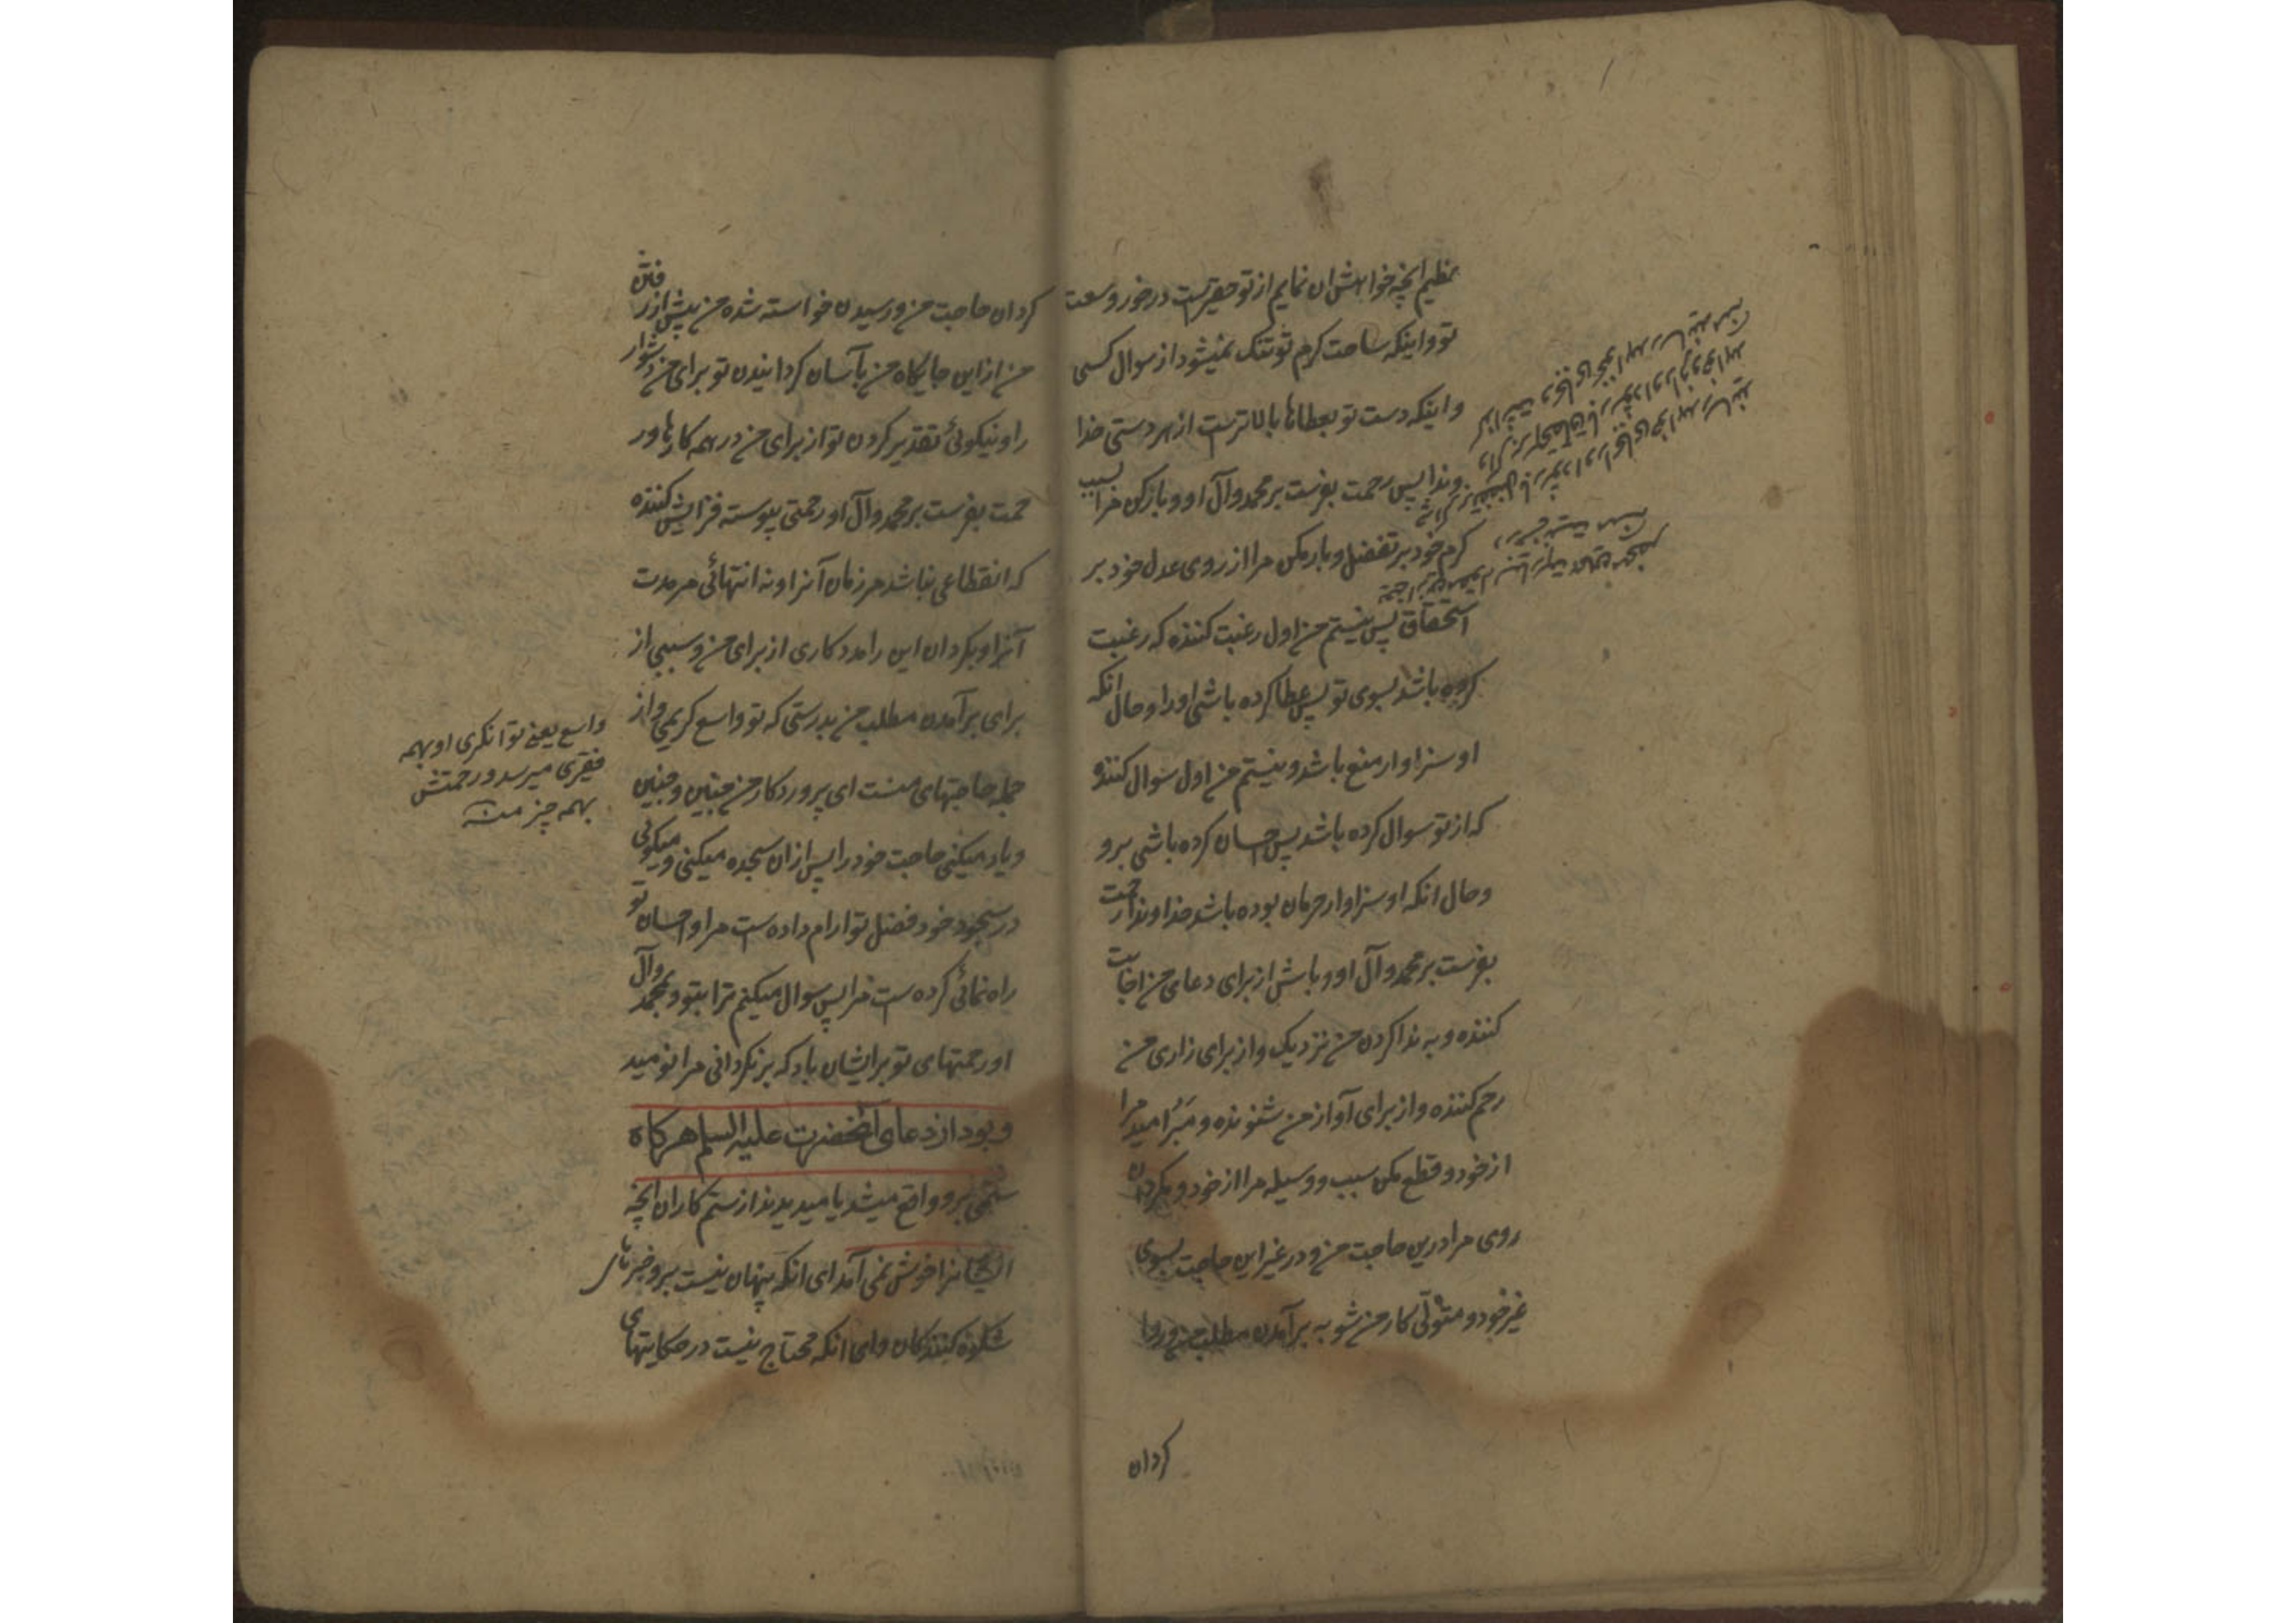 عظیم انچه خواهش ان نمایم از تو حقیرست درخور وسعت
تو و اینکه ساحت کرم تو تنک نمیشود از سوال کسی
و اینکه دست تو بعطاها بالاترست از هر دستی خدا
وندا پس رحمت بفرست بر محمد و آل او و بازکن مرا بسبب
کرم خود بر تفضل و بار مکن مرا از روی عدل خود بر
استحقاق پس نیستم من اول رغبت کننده که رغبت
کرده باشد بسوی تو پس عطا کرده باشی او را و حال انکه
او سزاوار منع باشد و نیستم من اول سوال کننده
که از تو سوال کرده باشد پس احسان کرده باشی برو
و حال انکه او سزاوار حرمان بوده باشد خداوندا رحمت
بفرست بر محمد و آل او و باش از برای دعای من اجابت
کننده و به ندا کردن من نزدیک و از برای زاری من
رحم کننده و از برای آواز من شنونده و مَبُر امید مرا
از خود و قطع مکن سبب و وسیله مرا از خود و مکردان
روی مرا درین حاجت من و در غیر این حاجت بسوی
غیر خود و متولّی کار من شو به برآمدن مطلب من و روا
کردان
کردان حاجت من و رسیدن خواسته شده من پیش از رفتن
من از این جایکاه من بآسان کردانیدن تو برای من دشوار
را و نیکوئی تقدیر کردن تو از برای من در همه کارها و ر
حمت بفرست بر محمد و آل او رحمتی پیوسته فزایش کننده
که انقطاعی نباشد مر زمان آنرا و نه انتهائی مر مدت
آنرا و بکردان این را مددکاری از برای من و سببی از
برای برآمدن مطلب من بدرستی که تو واسع کریمی و از
جمله حاجتهای منست ای پروردکار من چنین و چنین
و یاد میکنی حاجت خود را پس از ان سجده میکنی و میکوئی
در سجود خود فضل تو ارام داده است مرا و احسان تو
راه نمائی کرده ست مرا پس سوال میکنم ترا بتو و بمحمد و آل
او رحمتهای تو برایشان باد که برنکردانی مرا نومید
و بود از دعای آنحضرت علیه السلام هر کاه
ستمی برو واقع میشد یا میدیدند از ستم کاران انچه
انحضرا خوش نمی آمد ای انکه پنهان نیست برو خبرهای
شکوه کنندکان و ای انکه محتاج نیست در حکایتهای
واسع یعنی توانکری او بهمه
فقیری میرسد و رحمتش
بهمه چیز منه